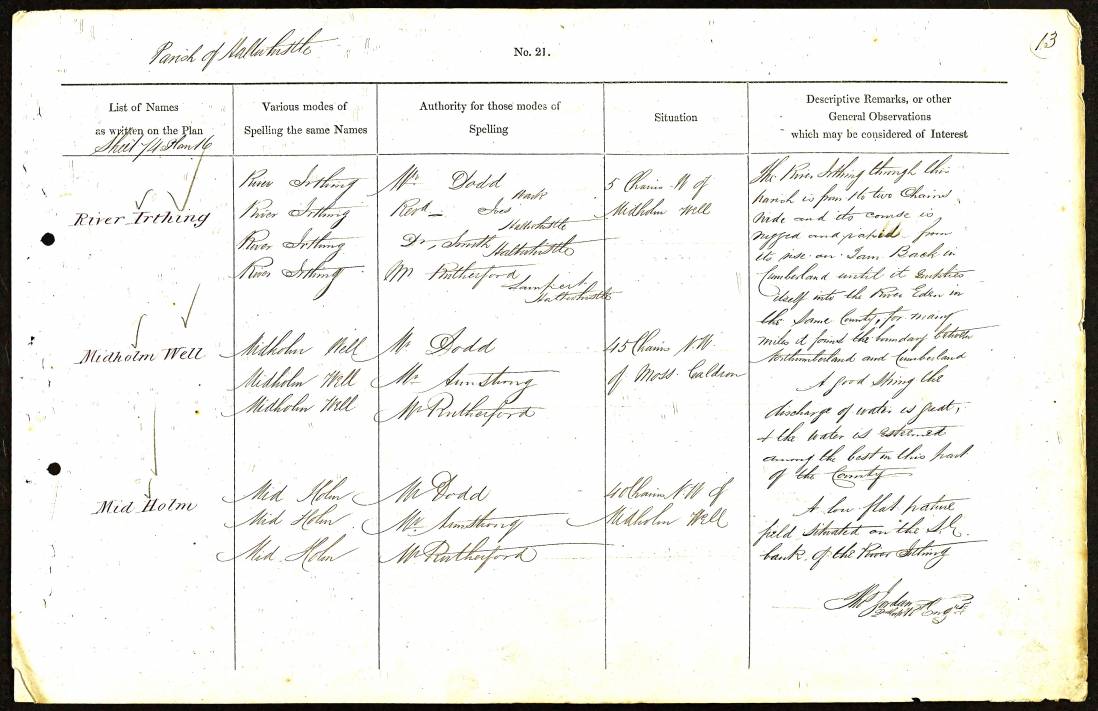 13
Parish of Haltwhistle
No. 21.
List of Names
as written on the Plan
Sheet 74 Plan 16
Various modes of
Spelling the same Names
Authority for those modes of
Spelling
Situation
Descriptive Remarks, or other
General Observations
which may be considered of Interest
River Irthing
River Irthing
River Irthing
River Irthing
River Irthing
Mr. Dodd
Revd Ives
Haltwhistle
Dr. Smith Haltwhistle
Mr Rutherford
Lampert
Haltwhistle
5 Chains W of
Midholm Well
The River Irthing through this
parish is from 1 to two Chains
wide and its course is
rugged and rapid from
its rise on
Cumberland until it empties
itself into the River Eden in
the same County, for many
miles it forms the boundary between
Northumberland and Cumberland
Midholm Well
Midholm Well
Midholm Well
Midholm Well
Mr Dodd
Mr Armstrong
Mr Rutherford
45 Chains N.W.
of Moss Caldron
A good Spring the
discharge of water is great,
& the water is esteemed
among the best in this part
of the County
Mid Holm
Mid Holm
Mid Holm
Mid Holm
Mr Dodd
Mr Armstrong
Mr Rutherford
40 Chains N.W of
Midholm Well
A low flat pasture
field situated on the S.E.
bank of the River Irthing
Thos Jordan